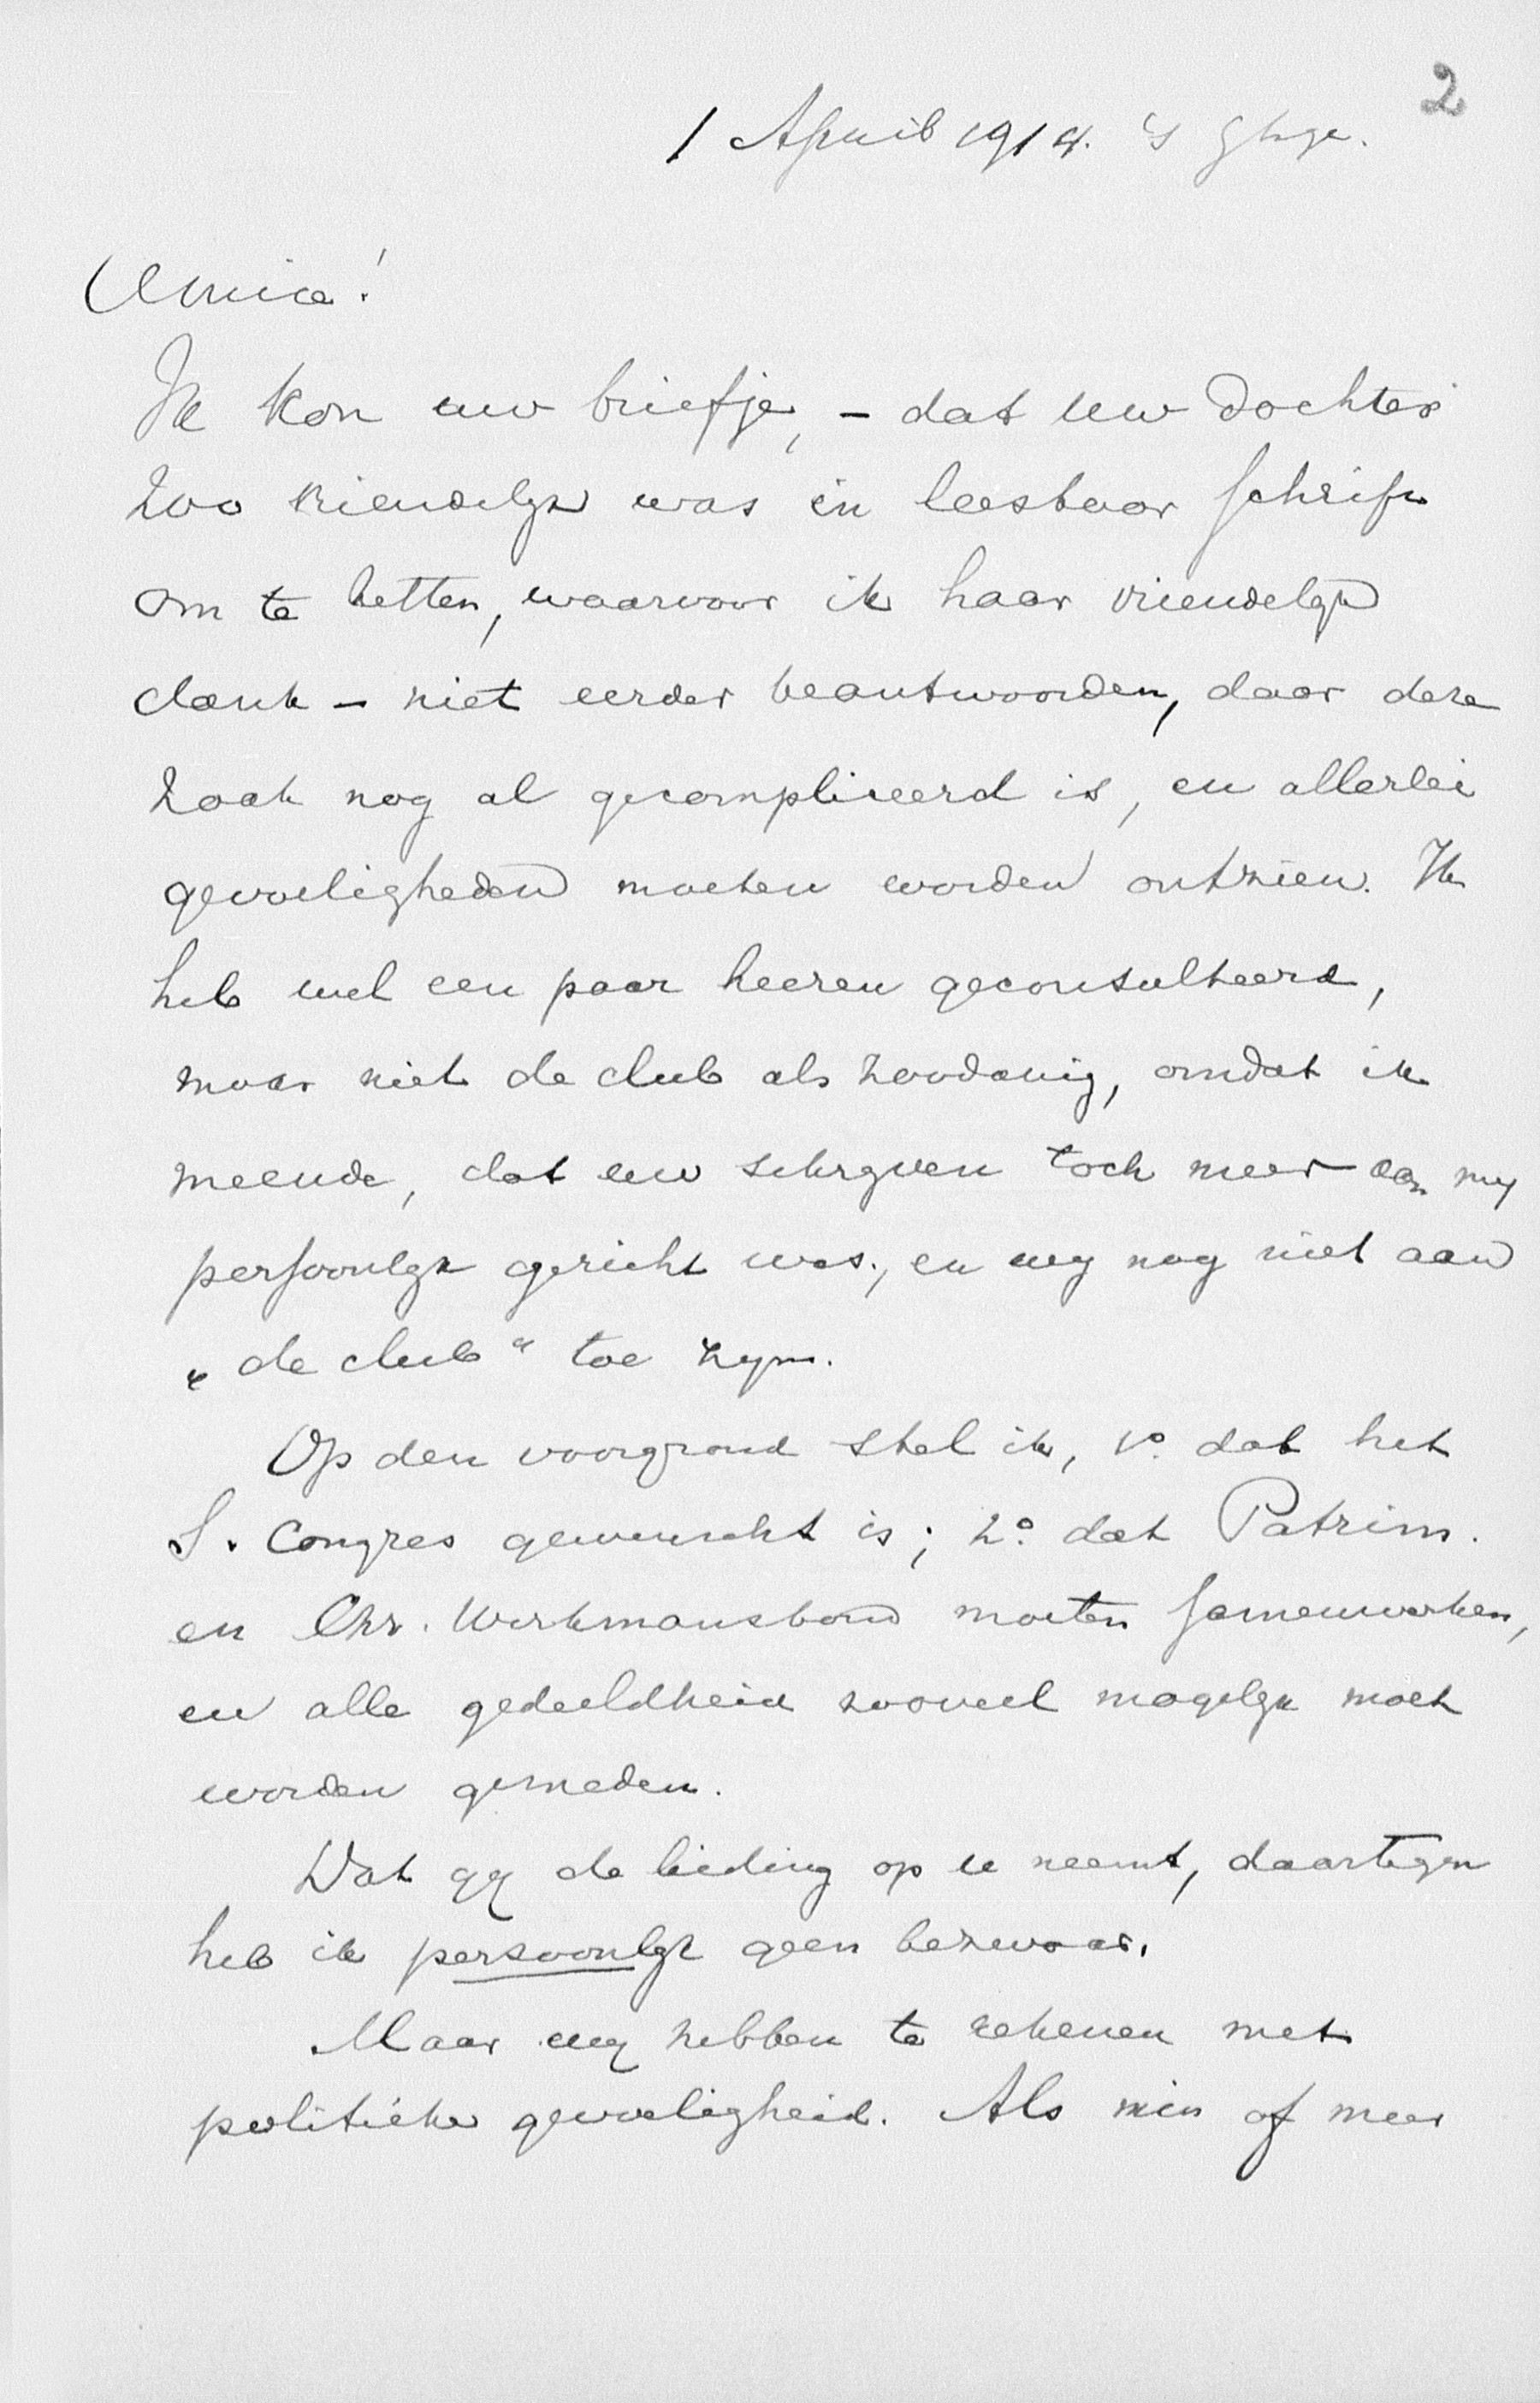 2
1 April 1914. 's Ghage.
Amice!
Ik kon uw briefje, - dat uw dochter
zoo vriendelyk was in leesbaar schrift
om te zetten, waarvoor ik haar vriendelyk
dank - niet eerder beantwoorden, daar deze
zaak nog al gecompliceerd is, en allerlei
gevoeligheden moeten worden ontzien. Ik
heb wel een paar heeren geconsulteerd,
maar niet de club als zoodanig, omdat ik
meende, dat uw schryven toch meer aan my
persoonlyk gericht was, en wy nog niet aan
„de club" toe zyn.
Op den voorgrond stel ik, 1o. dat het
S. Congres gewenscht is; 2o. dat Patrim.
en Chr. Werkmansbond moeten samenwerken,
en alle gedeeldheid zooveel mogelyk moet
worden gemeden.
Dat gy de leiding op u neemt, daartegen
heb ik persoonlyk geen bezwaar.
Maar wy hebben te rekenen met
politieke gevoeligheid. Als min of meer